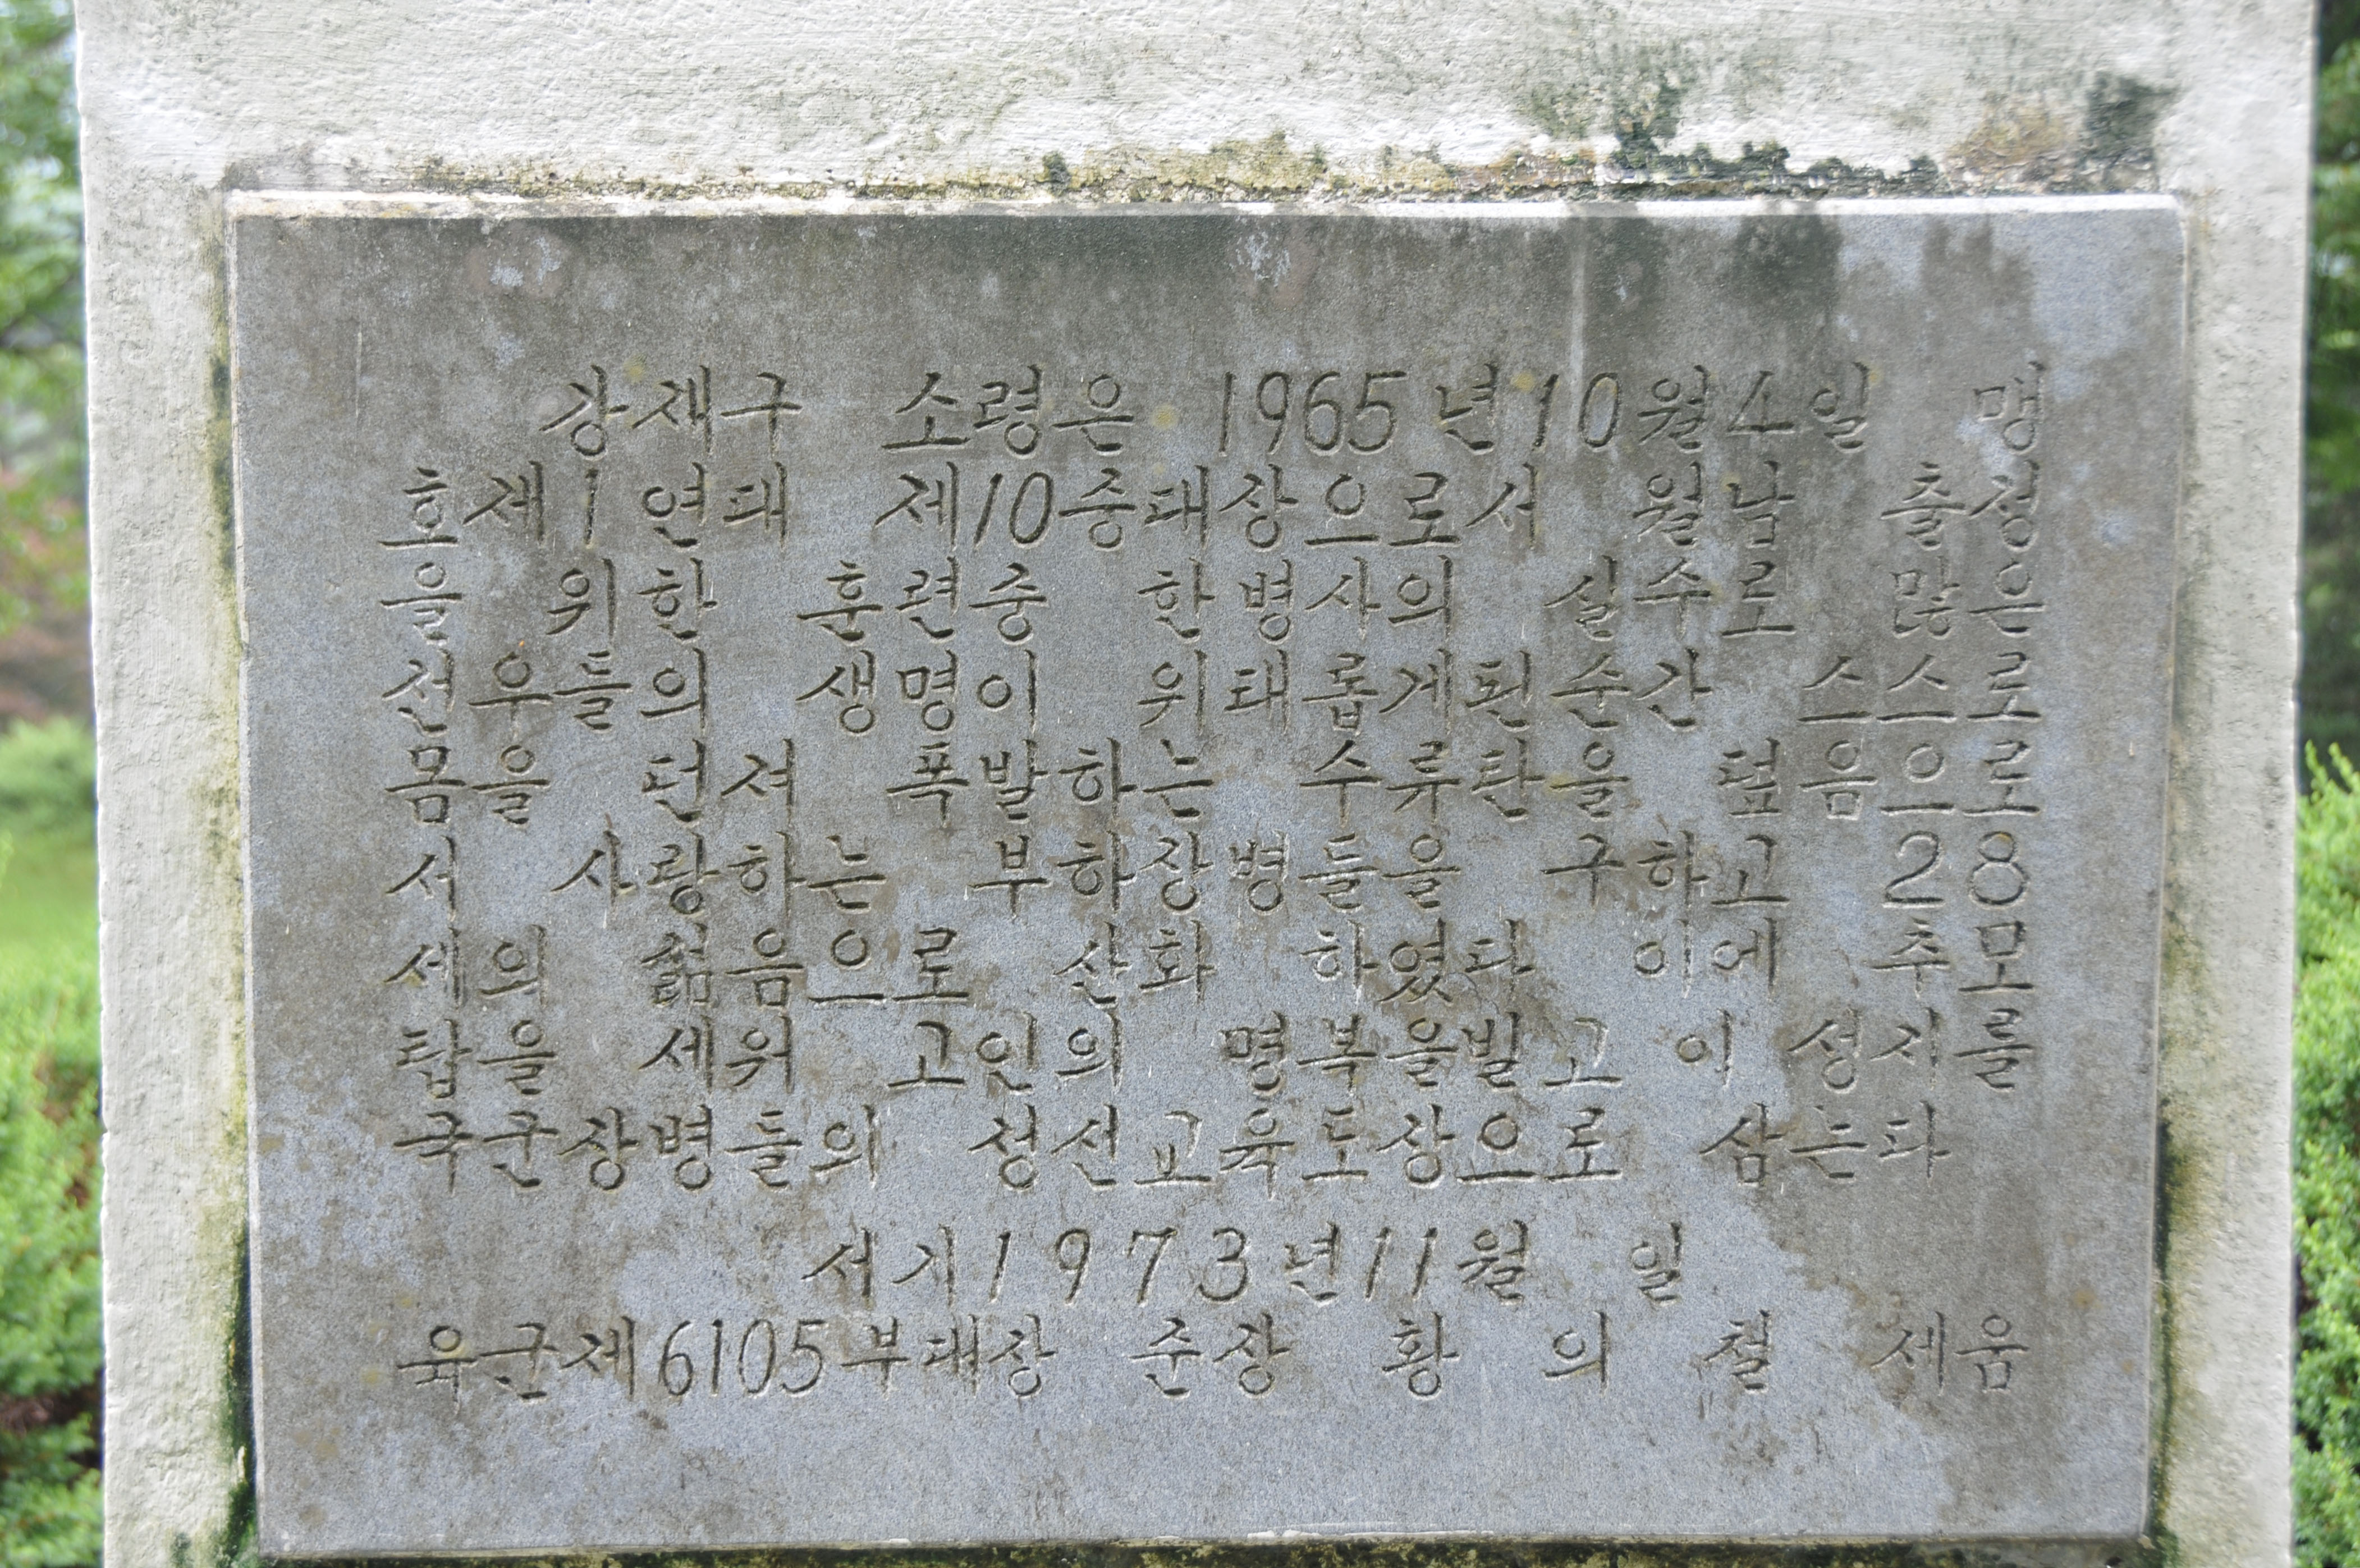 강재구 소령은 1965년10월4일 맹
호제1연대 제10중대장으로서 월남 출정
을 위한 훈련중 한병사의 실수로 많은
전우들의 생명이 위태롭게된순간 스스로
몸을 던져 폭발하는 수류탄을 덮음으로
서 사랑하는 부하장병들을 구하고 28
세의 젊음으로 산화 하였다 이에 추모
탑을 세워 고인의 명복을빌고 이 성지를
국군장병들의 정신교육도장으로 삼는다
서기1973년11월 일
육군제6105부대장 준장 황 의 철 세움